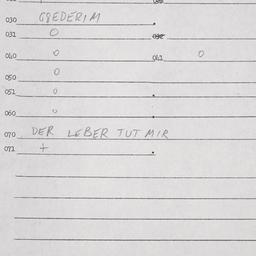 030 GGEDERIM
031 O
040 O 041 O
050 O
051 O
060 O
070 DER LEBER TUT MIR
071 +